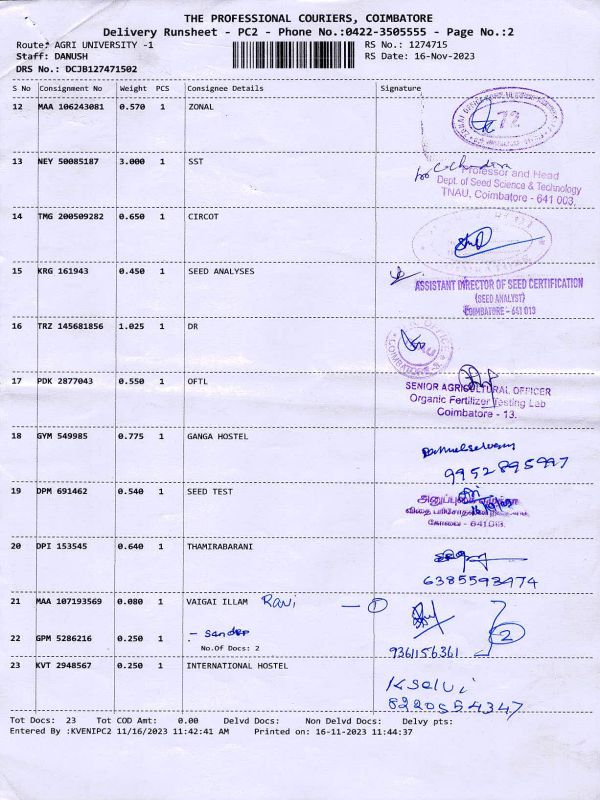 THE PROFESSIONAL COURIERS, COIMBATORE
Delivery Runsheet - PC2 - Phone No.:0422-3505555 - Page No.:2
Route: AGRI UNIVERSITY -1 RS No.: 1274715
Staff: DANUSH RS Date: 16-Nov-2023
DRS No.: DCJB127471502
S No Consignment No Weight PCS Consignee Details Signature
12 MAA 106243081 0.570 1 ZONAL
72
13 NEY 50085187 3.000 1 SST
Professor and Head
Dept. of Seed Science & Technology
TNAU, Coimbatore - 641 003.
14 TMG 200509282 0.650 1 CIRCOT
15 KRG 161943 0.450 1 SEED ANALYSES
ASSISTANT DIRECTOR OF SEED CERTIFICATION
(SEED ANALYST)
COIMBATORE - 641 013
16 TRZ 145681856 1.025 1 DR
17 PDK 2877043 0.550 1 OFTL
SENIOR AGRICULTURAL OFFICER
Organic Fertilizer Testing Lab
Coimbatore - 13.
18 GYM 549985 0.775 1 GANGA HOSTEL
9952895997
19 DPM 691462 0.540 1 SEED TEST
கோவை - 641013.
20 DPI 153545 0.640 1 THAMIRABARANI
6385593474
21 MAA 107193569 0.080 1 VAIGAI ILLAM Ravi - 1
22 GPM 5286216 0.250 1 - Sandep 2
No.Of Docs: 2
9361156361
23 KVT 2948567 0.250 1 INTERNATIONAL HOSTEL
K Selvi
8220554347
Tot Docs: 23 Tot COD Amt: 0.00 Delvd Docs: Non Delvd Docs: Delvy pts:
Entered By :KVENIPC2 11/16/2023 11:42:41 AM Printed on: 16-11-2023 11:44:37